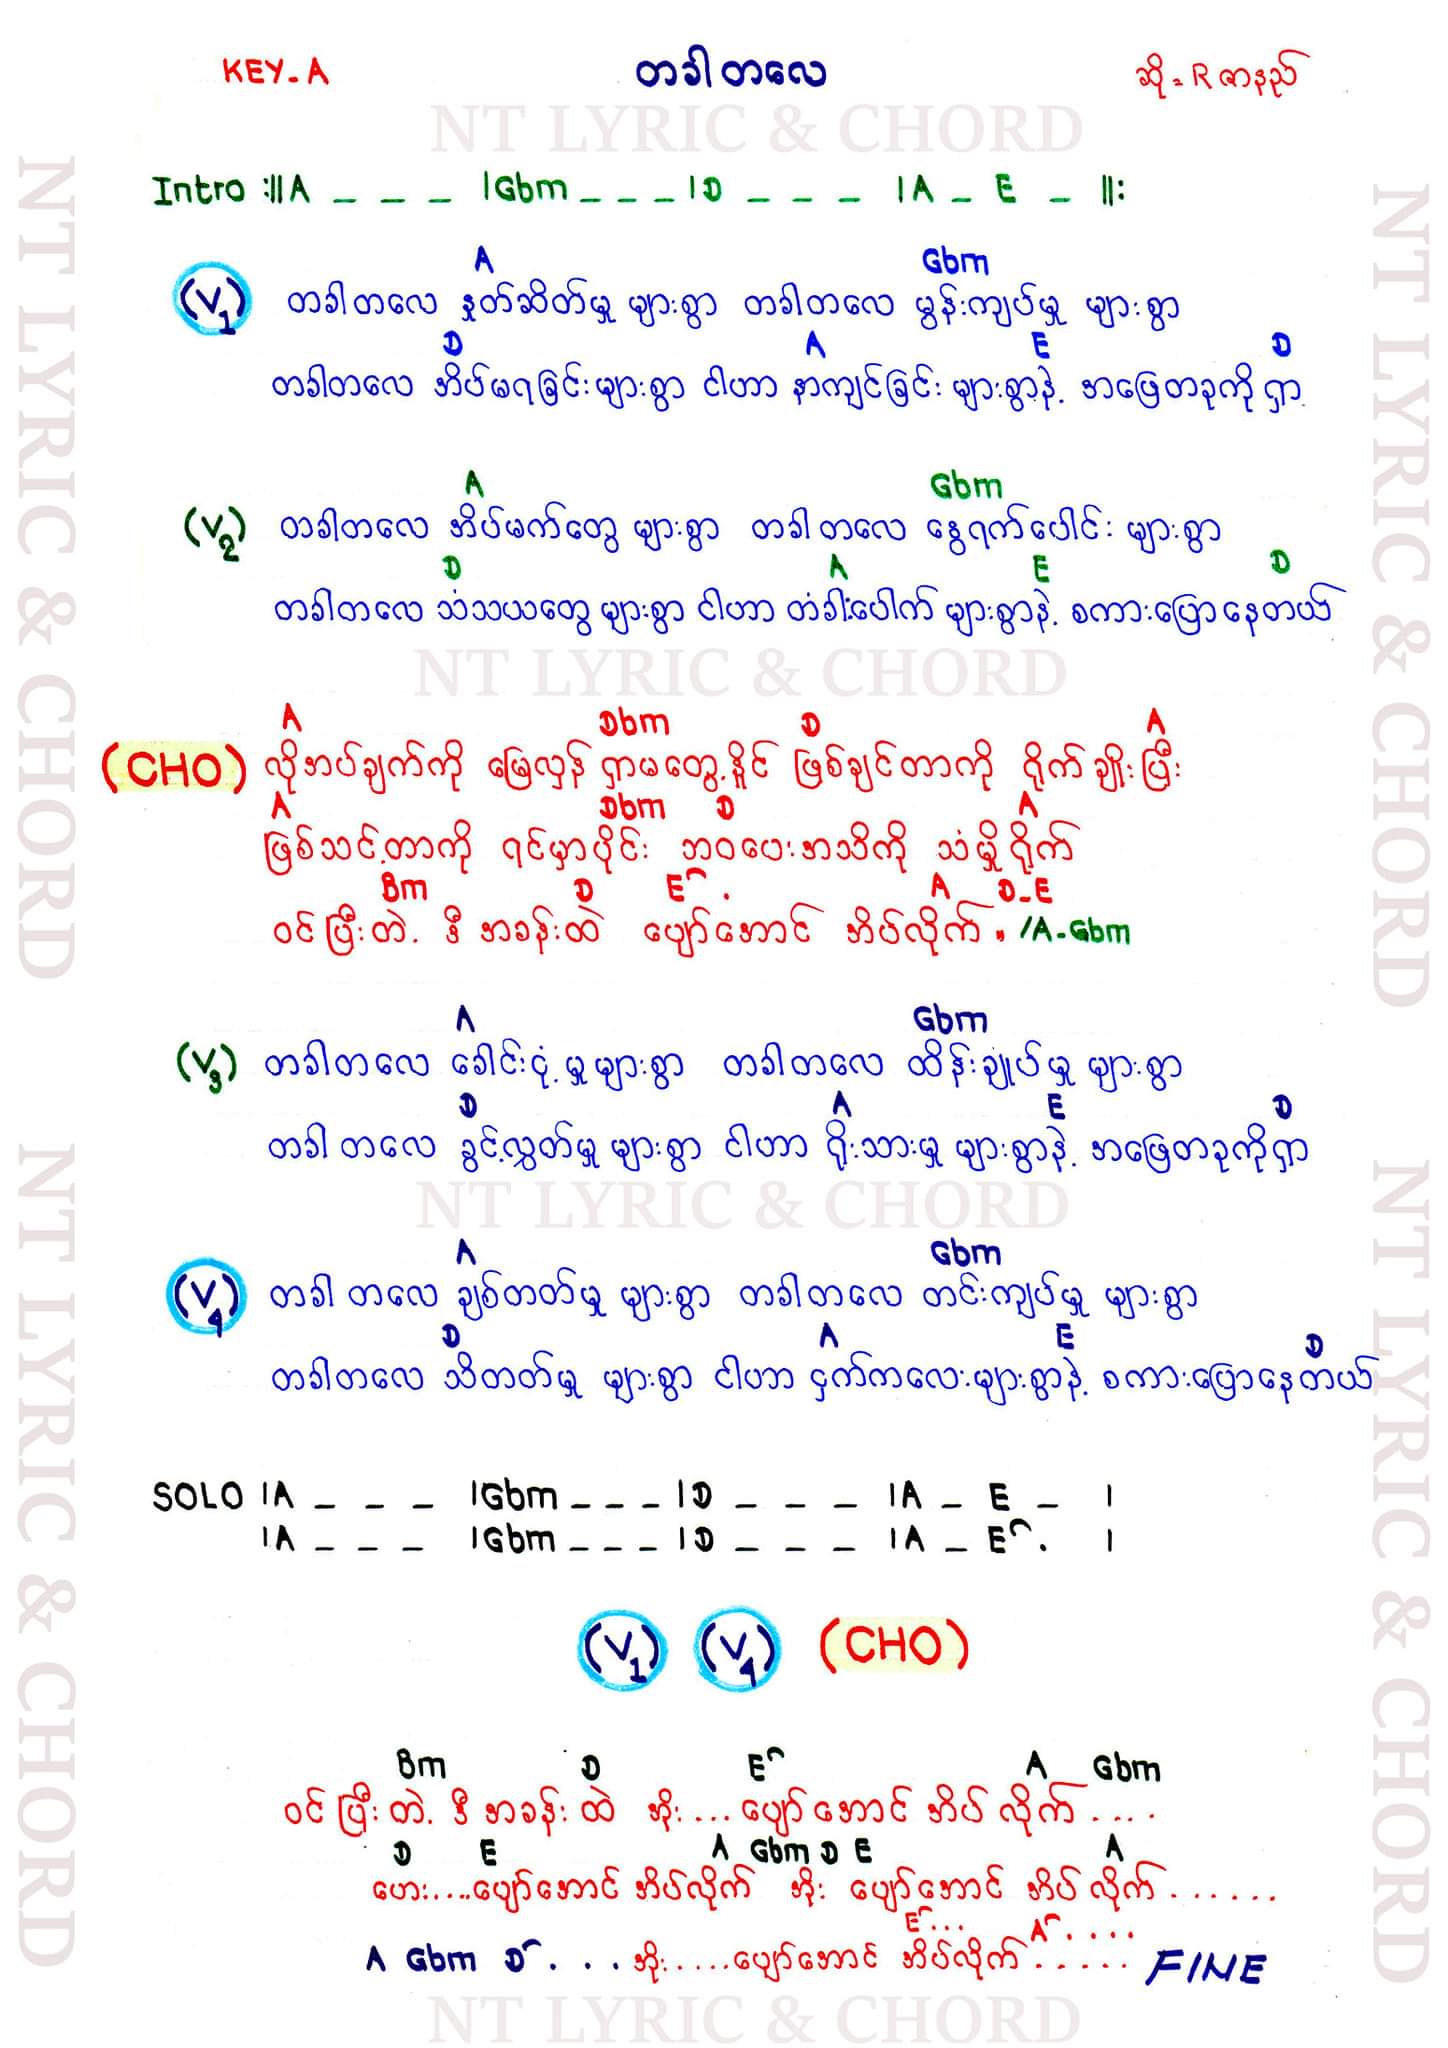 KEY-A တခါတလေ ဆို = R ဇာနည်
NT LYRIC & CHORD
Intro :|| A _ _ _ | Gbm _ _ _ | D _ _ _ | A _ E _ ||:
A Gbm
(V1) တခါတလေ နှုတ်ဆိတ်မှု များစွာ တခါတလေ မွန်းကျပ်မှု များစွာ
D A E D
တခါတလေ အိပ်မရခြင်းများစွာ ငါဟာ နာကျင်ခြင်း များစွာနဲ့ အဖြေတခုကိုရှာ
A Gbm
(V2) တခါတလေ အိပ်မက်တွေ များစွာ တခါတလေ နွေရက်ပေါင်း များစွာ
D A E D
တခါတလေ သံသယတွေ များစွာ ငါဟာ တံခါးပေါက် များစွာနဲ့ စကားပြောနေတယ်
NT LYRIC & CHORD
A Dbm D A
(CHO) လိုအပ်ချက်ကို မြေလှန် ရှာမတွေ့နိုင် ဖြစ်ချင်တာကို ရိုက်ချိုးပြီး
A Dbm D A
ဖြစ်သင့်တာကို ရင်မှာပိုင်း ဘဝပေးအသိကို သံမှိုရိုက်
Bm D E . A D-E
ဝင်ပြီးတဲ့ ဒီအခန်းထဲ ပျော်အောင် အိပ်လိုက် " /A-Gbm
A Gbm
(V3) တခါတလေ ခေါင်းငုံ့မှုများစွာ တခါတလေ ထိန်းချုပ်မှု များစွာ
D A E D
တခါတလေ ခွင့်လွှတ်မှု များစွာ ငါဟာ ရိုးသားမှု များစွာနဲ့ အဖြေတခုကိုရှာ
NT LYRIC & CHORD
A Gbm
(V4) တခါတလေ ချစ်တတ်မှု များစွာ တခါတလေ တင်းကျပ်မှု များစွာ
D A E D
တခါတလေ သိတတ်မှု များစွာ ငါဟာ ငှက်ကလေးများစွာနဲ့ စကားပြောနေတယ်
SOLO | A _ _ _ | Gbm _ _ _ | D _ _ _ | A _ E _ |
| A _ _ _ | Gbm _ _ _ | D _ _ _ | A _ E . |
(V1) (V4) (CHO)
Bm D E A Gbm
ဝင်ပြီးတဲ့ ဒီအခန်းထဲ အိုး... ပျော်အောင် အိပ်လိုက်....
D E A Gbm D E A
ဟေး....ပျော်အောင် အိပ်လိုက် အိုး ပျော်အောင် အိပ်လိုက်......
E... A....
A Gbm D ... အိုး....ပျော်အောင် အိပ်လိုက်..... FINE
NT LYRIC & CHORD
NT LYRIC & CHORD
NT LYRIC & CHORD
NT LYRIC & CHORD
NT LYRIC & CHORD